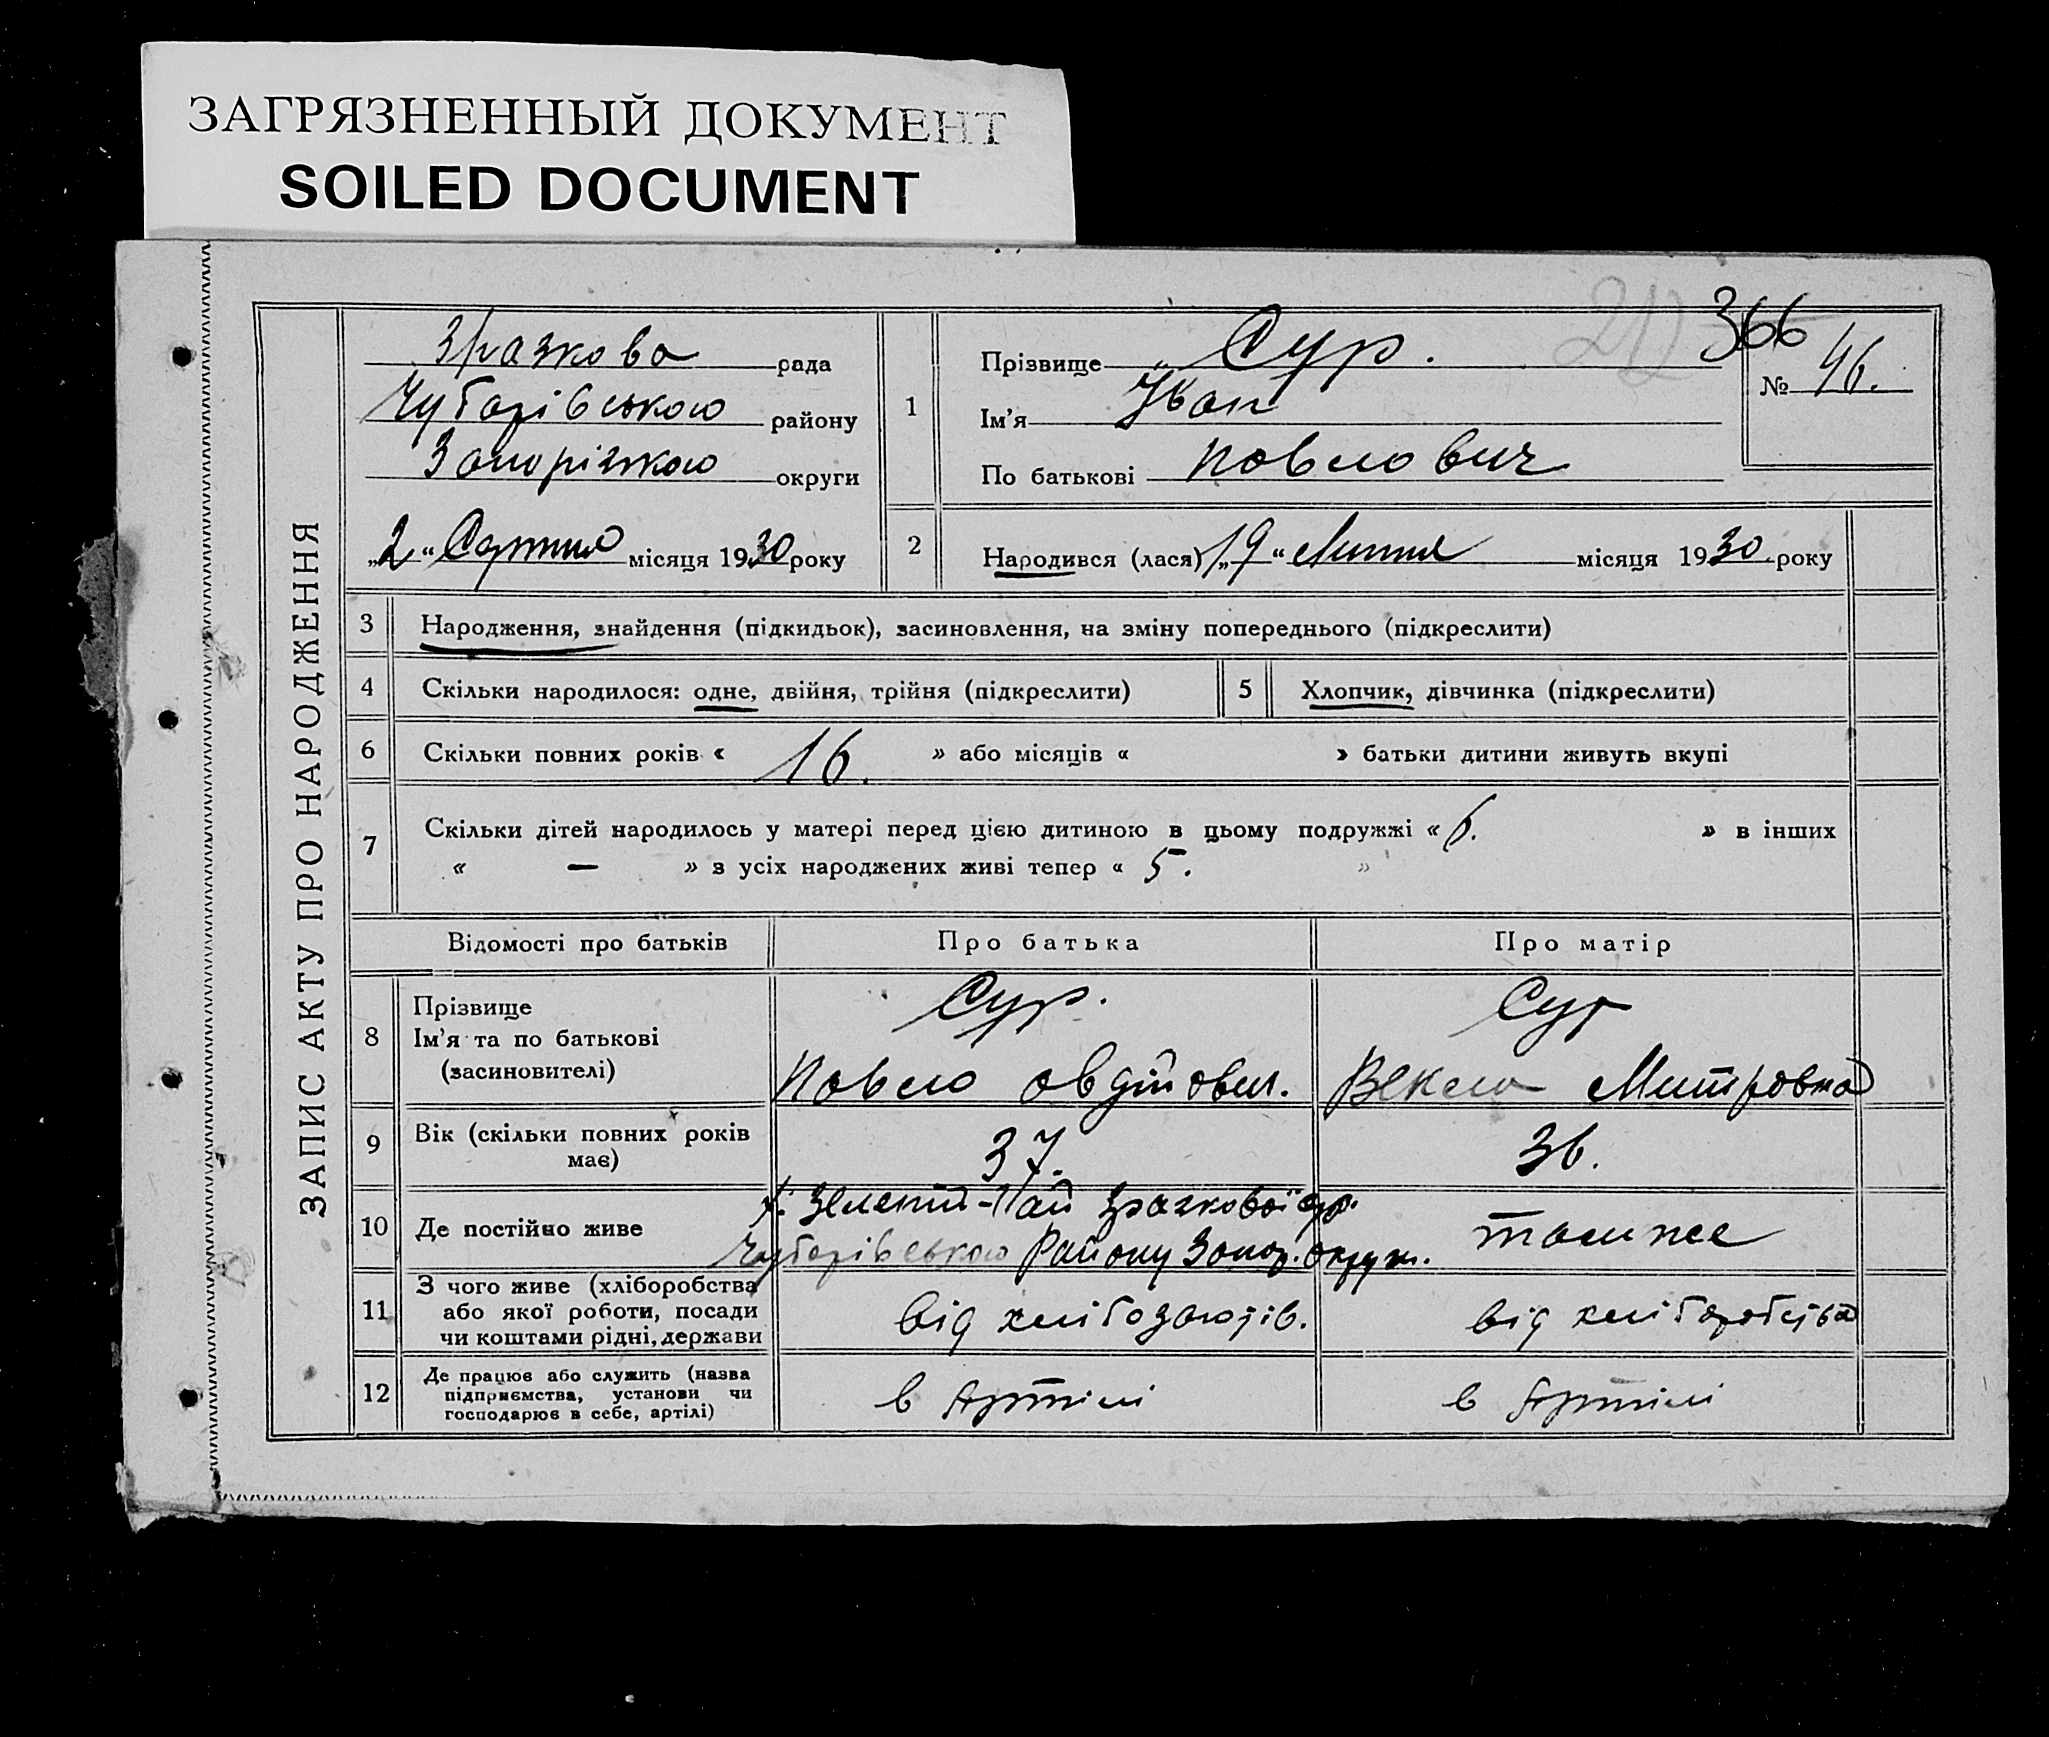 ЗАГРЯЗНЕННЫЙ ДОКУМЕНТ
SOILED DOCUMENT
366
ЗАПИС АКТУ ПРО НАРОДЖЕННЯ
Зразкова рада
Чубарівського району
Запорізкого округи
„2“ Серпня місяця 1930 року
1
Прізвище Сур.
Ім'я Іван
По батькові Павлович
№ 46.
2
Народився (лася) „19“ Липня місяця 1930 року
3 Народження, знайдення (підкидьок), засиновлення, на зміну попереднього (підкреслити)
4 Скільки народилося: одне, двійня, трійня (підкреслити)
5 Хлопчик, дівчинка (підкреслити)
6 Скільки повних років « 16. » або місяців « » батьки дитини живуть вкупі
7 Скільки дітей народилось у матері перед цією дитиною в цьому подружжі « 6. » в інших
« — » з усіх народжених живі тепер « 5. »
Відомості про батьків Про батька Про матір
8 Прізвище
Ім'я та по батькові
(засиновителі)
Сур.
Павло Овдійович.
Сур
Векла Митровна
9 Вік (скільки повних років
має)
37.
36.
10 Де постійно живе
х. Зелений-Гай Зразкової с/р.
Чубарівського Району Запор. округи.
також
11 З чого живе (хліборобства
або якої роботи, посади
чи коштами рідні, держави
від
від хліборобства
12 Де працює або служить (назва
підприємства, установи чи
господарює в себе, артілі)
в Артілі
в Артілі